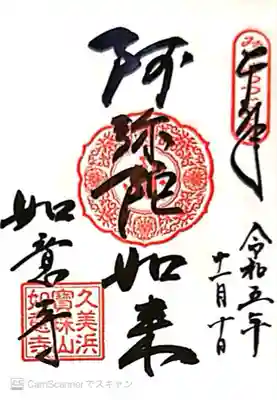 奉拝
令和五年
十一月十日
阿弥陀如来
如意寺
久美浜
寶珠山
如意寺
CamScannerでスキャン